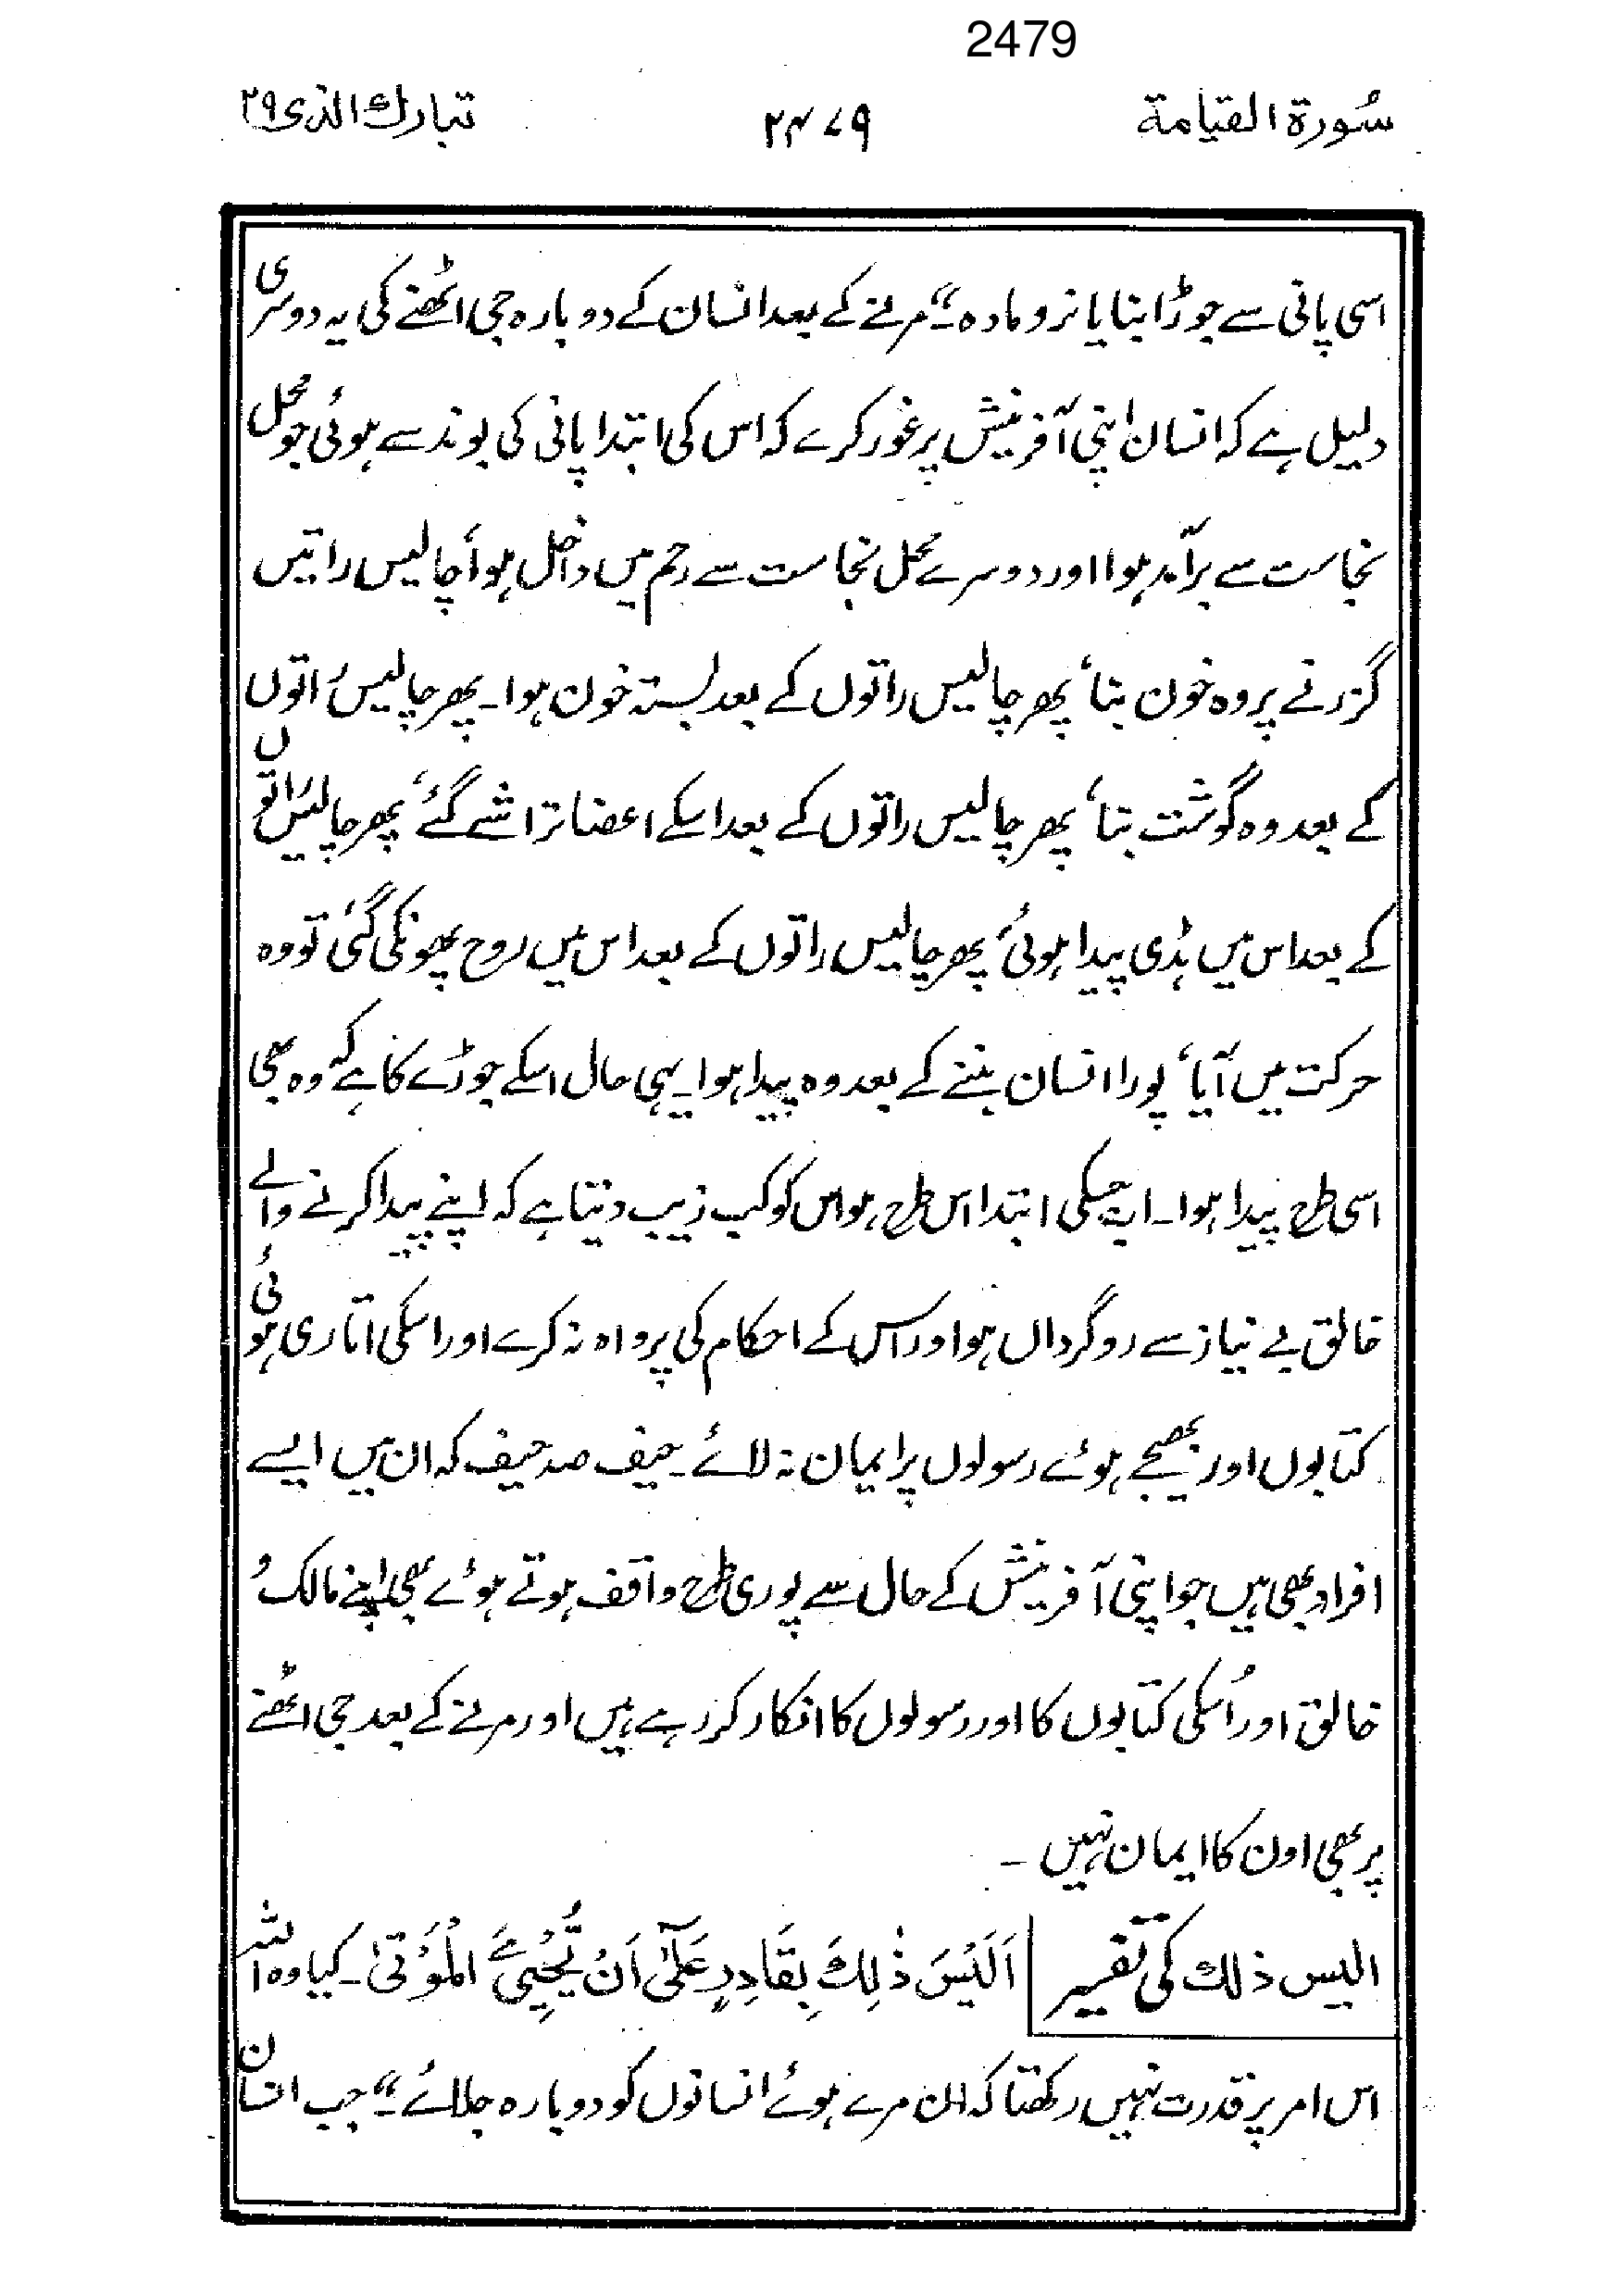 2479
سُورۃ القیامۃ ۲۴۷۹ تبارك الذی ۲۹
اسی پانی سے جوڑا بنایا نر و مادہ۔“ مرنے کے بعد انسان کے دوبارہ جی اٹھنے کی یہ دوسری
دلیل ہے کہ انسان اپنی آفرینش پر غور کرے کہ اس کی ابتدا پانی کی بوند سے ہوئی جو محل
نجاست سے برآمد ہوا اور دوسرے محل نجاست سے رحم میں داخل ہوا، چالیس راتیں
گزرنے پر وہ خون بنا، پھر چالیس راتوں کے بعد بستہ خون ہوا۔ پھر چالیس راتوں
کے بعد وہ گوشت بنا، پھر چالیس راتوں کے بعد اسکے اعضا تراشے گئے، پھر چالیس راتوں
کے بعد اس میں ہڈی پیدا ہوئی، پھر چالیس راتوں کے بعد اس میں روح پھونکی گئی تو وہ
حرکت میں آیا، پورا انسان بننے کے بعد وہ پیدا ہوا۔ یہی حال اسکے جوڑے کا ہے کہ وہ بھی
اسی طرح پیدا ہوا۔ اب جسکی ابتدا اس طرح ہو اس کو کب زیب دیتا ہے کہ اپنے پیدا کرنے والے
خالق بے نیاز سے روگرداں ہو اور اس کے احکام کی پرواہ نہ کرے اور اسکی اتاری ہوئی
کتابوں اور بھیجے ہوئے رسولوں پر ایمان نہ لائے۔ حیف صد حیف کہ ان میں ایسے
افراد بھی ہیں جو اپنی آفرینش کے حال سے پوری طرح واقف ہوتے ہوئے بھی اپنے مالک و
خالق اور اُسکی کتابوں کا اور رسولوں کا انکار کر رہے ہیں اور مرنے کے بعد جی اٹھنے
پر بھی اون کا ایمان نہیں ۔
الیس ذلك کی تفسیر اَلَیْسَ ذٰلِكَ بِقَادِرٍ عَلٰٓی اَنْ یُّحْیِیَ الْمَوْتٰی۔ کیا وہ اللہ
اس امر پر قدرت نہیں رکھتا کہ ان مرے ہوئے انسانوں کو دوبارہ جلائے۔“ جب انسان